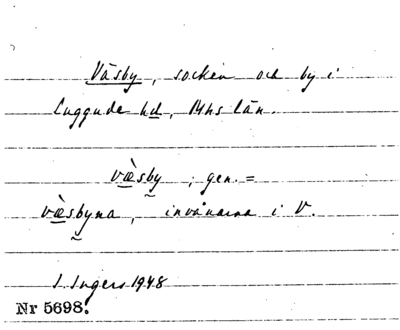 Väsby, socken och by i
Luggude hd, Mhs län.
væ̀sby, gen. =
væ̀sbyna, invånarna i V.
I. Ingers 1948
Nr 5698.